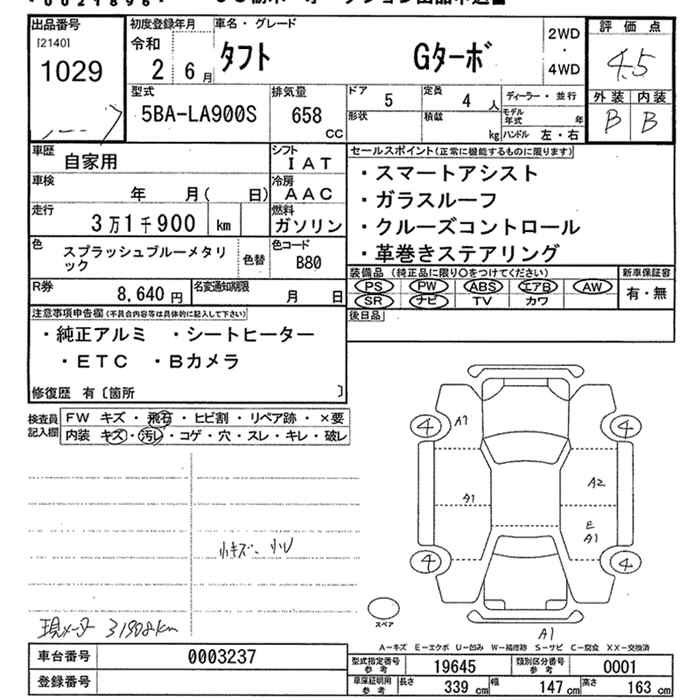 出品番号
[2140]
1029
初度登録年月
令和
2 6月
車名・グレード
タフト Gターボ
2WD
・
4WD
評価点
4.5
外装 内装
B B
型式
5BA-LA900S
排気量
658
cc
ドア
5
定員
4 人
形状
積載
kg
ディーラー・並行
モデル年式 年
ハンドル 左・右
車歴
自家用
シフト
IAT
車検
年 月( 日)
冷房
AAC
走行
3万1千900 km
燃料
ガソリン
色
スプラッシュブルーメタリック
色替
色コード
B80
R券
8,640円
名変通知期限
月 日
セールスポイント(正常に機能するものに限ります)
・スマートアシスト
・ガラスルーフ
・クルーズコントロール
・革巻きステアリング
装備品 (純正品に限り○をつけてください)
PS PW ABS エアB AW
SR ナビ TV カワ
新車保証書
有・無
後日品
注意事項申告欄(不具合内容等は具体的に記入して下さい)
・純正アルミ ・シートヒーター
・ETC ・Bカメラ
修復歴 有〔箇所 〕
検査員記入欄
FW キズ・飛石・ヒビ割・リペア跡・×要
内装 キズ・汚レ・コゲ・穴・スレ・キレ・破レ
A1
4
4
A1
A2
E
A1
4
4
A1
スペア
現メーター 31908km
A-キズ E-エクボ U-凹み W-補修跡 S-サビ C-腐食 XX-交換済
車台番号
0003237
登録番号
型式指定番号 参考
19645
類別区分番号 参考
0001
車庫証明用 参考
長さ 339 cm
幅 147 cm
高さ 163 cm